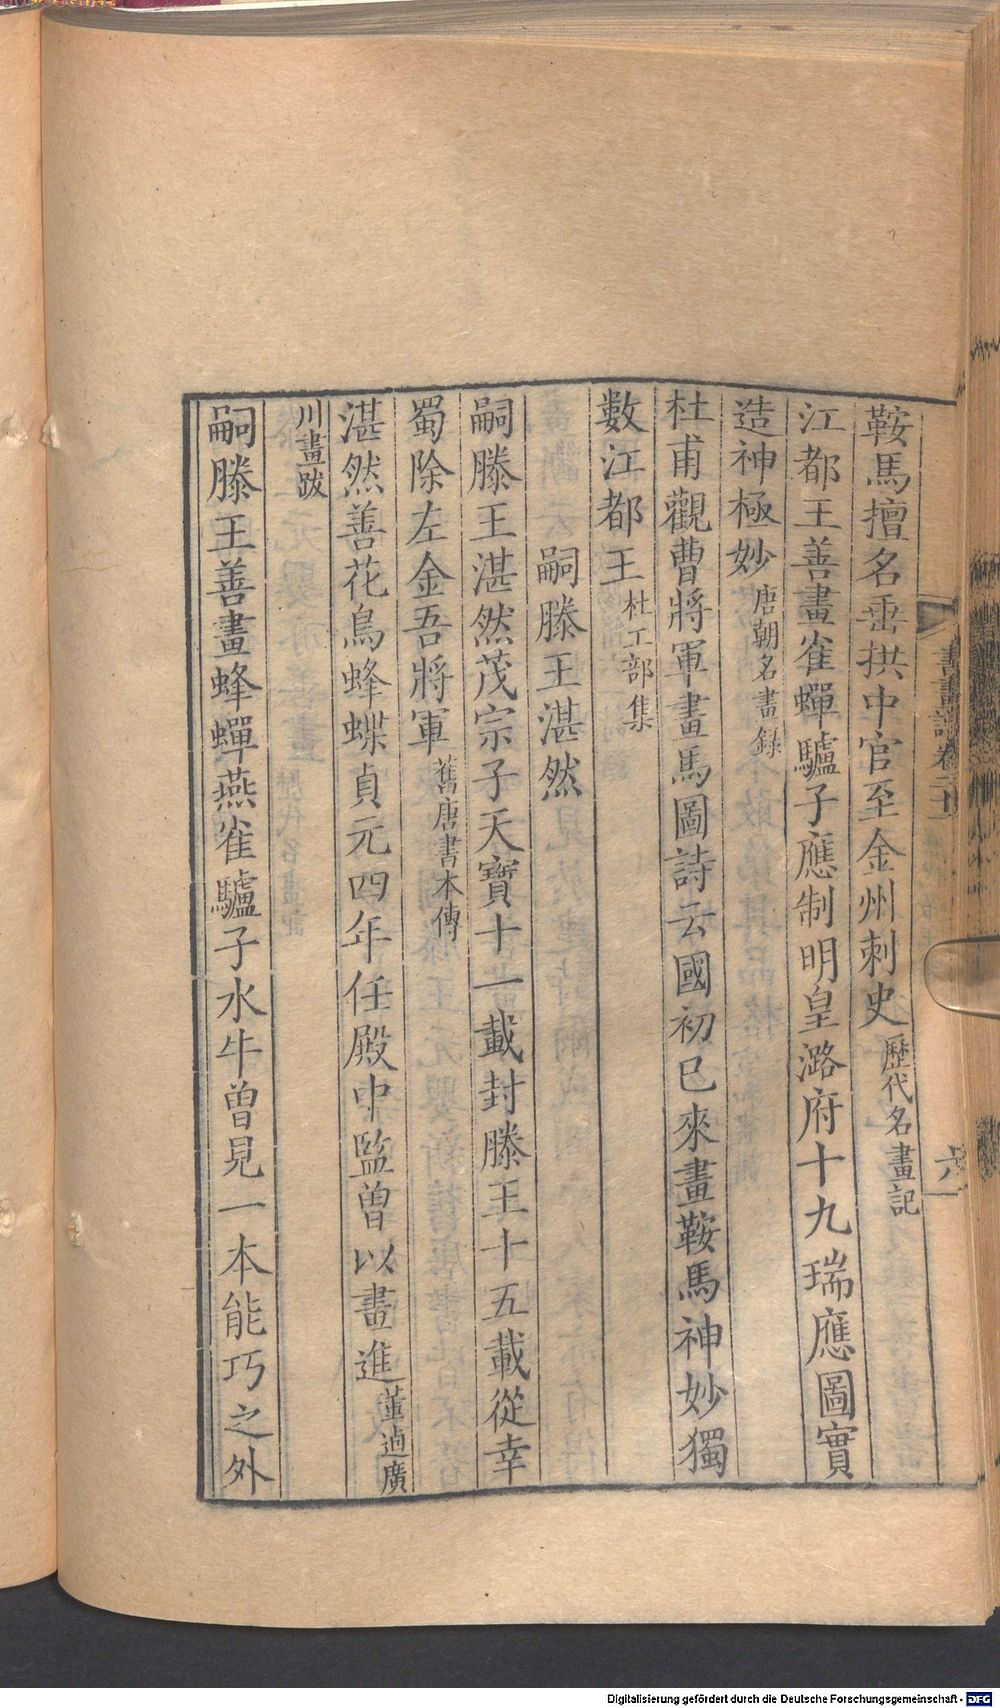 鞍馬擅名垂拱中官至金州刺史歷代名畫記
江都王善畫雀蟬驢子應制明皇潞府十九瑞應圖實
造神極妙唐朝名畫錄
杜甫觀曹將軍畫馬圖詩云國初已來畫鞍馬神妙獨
數江都王杜工部集
嗣滕王湛然
嗣滕王湛然茂宗子天寶十一載封滕王十五載從幸
蜀除左金吾將軍舊唐書本傳
湛然善花鳥蜂蝶貞元四年任殿中監曾以畫進董逌廣
川畫跋
嗣滕王善畫蜂蟬燕雀驢子水牛曾見一本能巧之外
六
Digitalisierung gefördert durch die Deutsche Forschungsgemeinschaft - DFG